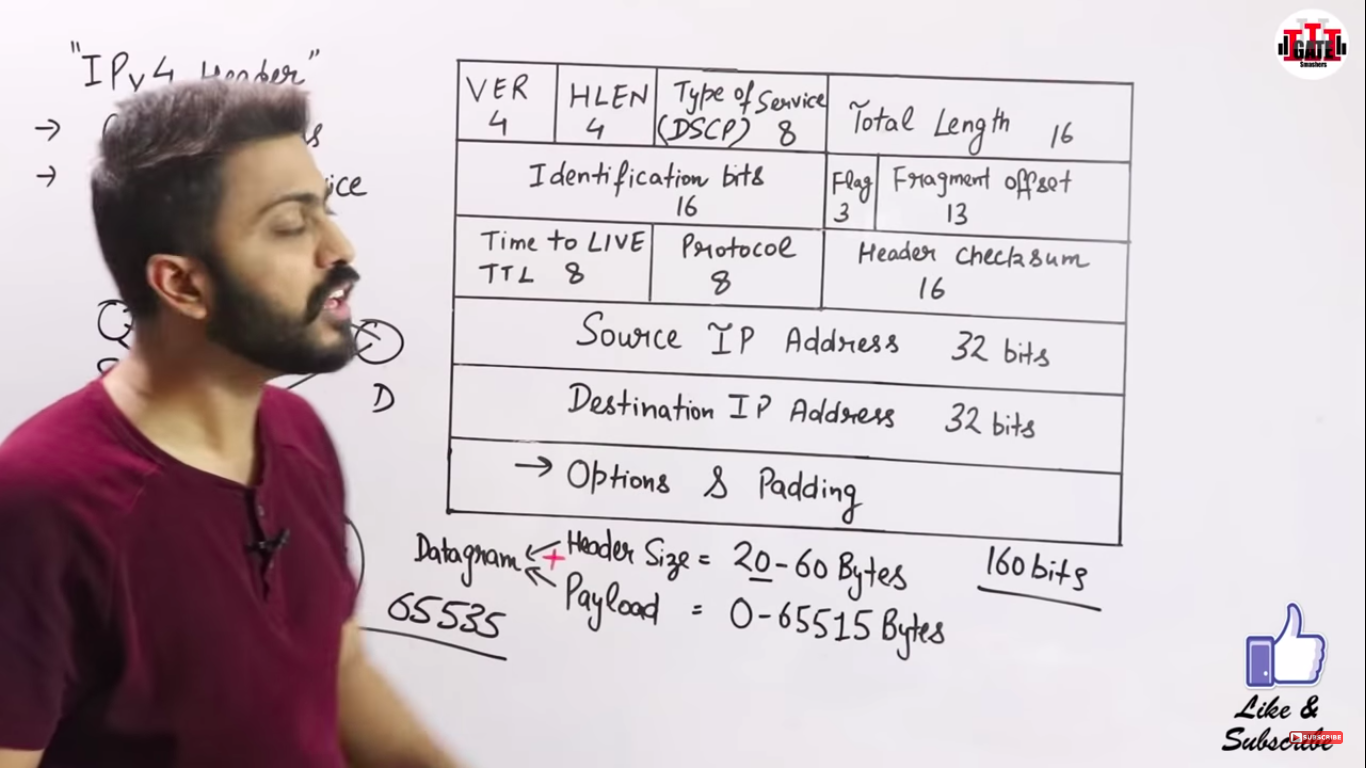 "IPv4 Header"
→
→
D
VER
4
HLEN
4
Type of Service
(DSCP) 8
Total Length 16
Identification bits
16
Flag
3
Fragment offset
13
Time to LIVE
TTL 8
Protocol
8
Header checksum
16
Source IP Address 32 bits
Destination IP Address 32 bits
→ Options & Padding
Datagram
+
Header Size = 20-60 Bytes
160 bits
Payload = 0-65515 Bytes
65535
GATE
Smashers
Like &
Subscribe
SUBSCRIBE